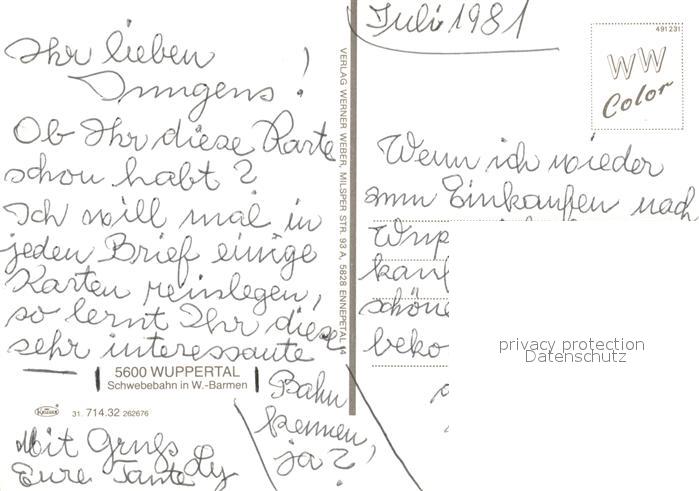 Juli 1981
Ihr lieben
Jungens!
Ob Ihr diese Karte
schon habt?
Ich will mal in
jeden Brief einige
Karten reinlegen,
so lernt Ihr diese
sehr interessante
Bahn
kennen,
ja?
5600 WUPPERTAL
Schwebebahn in W.-Barmen
KRÜGER
31. 714.32 262676
Mit Gruß
Eure Tante Ly
VERLAG WERNER WEBER, MILSPER STR. 93 A, 5828 ENNEPETAL 14
491231
WW
Color
Wenn ich wieder
zum Einkaufen nach
Wup
kauf
schöne
beko
privacy protection
Datenschutz